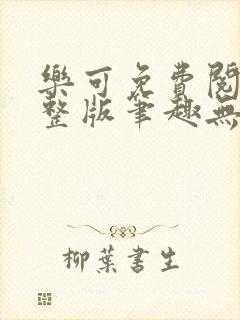 樂可免費閱
整版筆趣無
柳葉書生